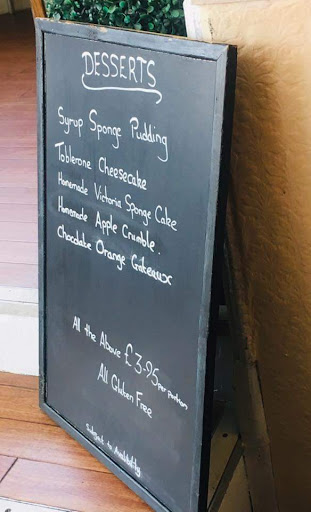 DESSERTS
Syrup Sponge Pudding
Toblerone Cheesecake
Homemade Victoria Sponge Cake
Homemade Apple Crumble.
Chocolate Orange Gateaux
All the Above £3-95 per portion
All Gluten Free
Subject to Availability